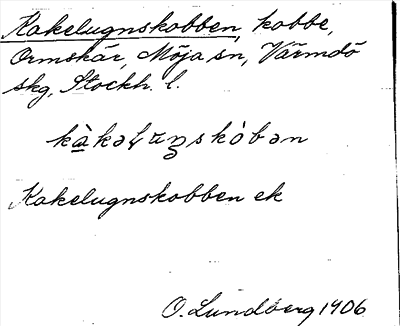 Kakelugnskobben, kobbe,
Ormskär, Möja sn, Värmdö
skg, Stockh. l.
kàkəluŋskòbən
Kakelugnskobben ek
O. Lundberg 1906